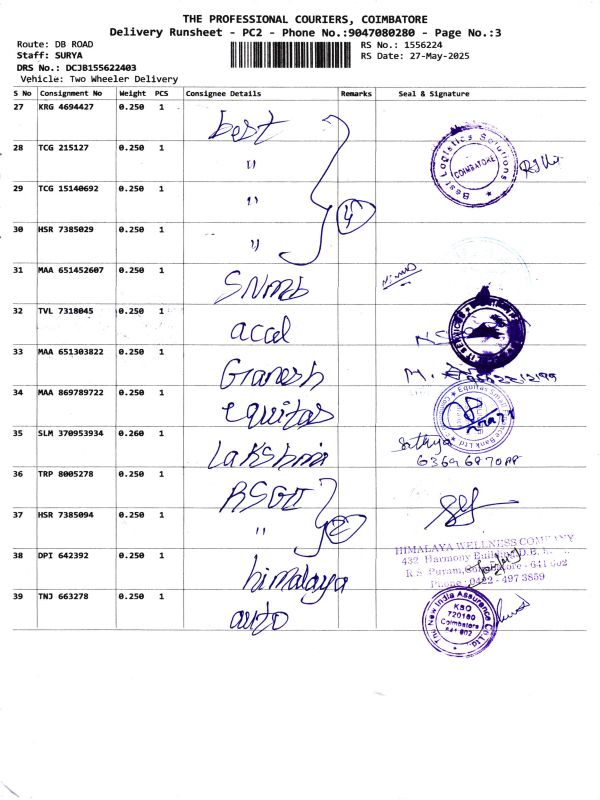 THE PROFESSIONAL COURIERS, COIMBATORE
Delivery Runsheet - PC2 - Phone No.:9047080280 - Page No.:3
Route: DB ROAD
Staff: SURYA
DRS No.: DCJB155622403
Vehicle: Two Wheeler Delivery
RS No.: 1556224
RS Date: 27-May-2025
S No Consignment No Weight PCS Consignee Details Remarks Seal & Signature
27 KRG 4694427 0.250 1 best
28 TCG 215127 0.250 1 "
29 TCG 15140692 0.250 1 " 4
30 HSR 7385029 0.250 1 "
Best Logistics Solutions
COIMBATORE
31 MAA 651452607 0.250 1 SNmb
32 TVL 7318045 0.250 1 accel
33 MAA 651303822 0.250 1 Ganesh
34 MAA 869789722 0.250 1 equitas
35 SLM 370953934 0.260 1 Lakshmi
Sathya
36 TRP 8005278 0.250 1 RSGII
37 HSR 7385094 0.250 1 " 2
38 DPI 642392 0.250 1 himalaya
HIMALAYA WELLNESS COMPANY
432 Harmony Building, D.B.
R.S Puram, Coimbatore - 641 002
Phone : 0422 - 497 3859
39 TNJ 663278 0.250 1 auto
The New India Assurance Co. Ltd.
KSO
720160
Coimbatore
641 002